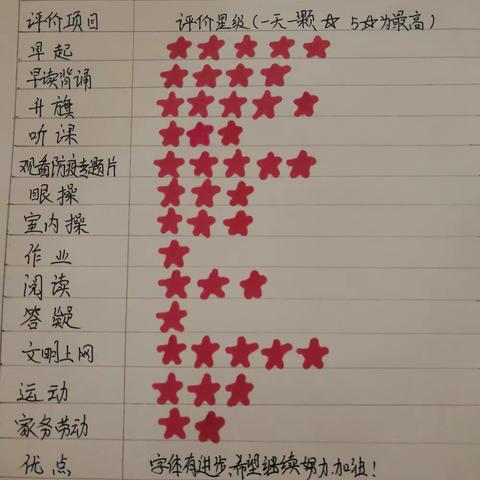 评价项目 评价星级(一天一颗☆ 5☆为最高)
早起 ★★★★★
早读背诵 ★★★★
升旗 ★★★★★
听课 ★★★
观看防疫专题片 ★★★★★
眼操 ★★★
室内操 ★★★
作业 ★
阅读 ★★★
答疑 ★
文明上网 ★★★★★
运动 ★★★
家务劳动 ★★
优点 字体有进步,希望继续努力,加油!